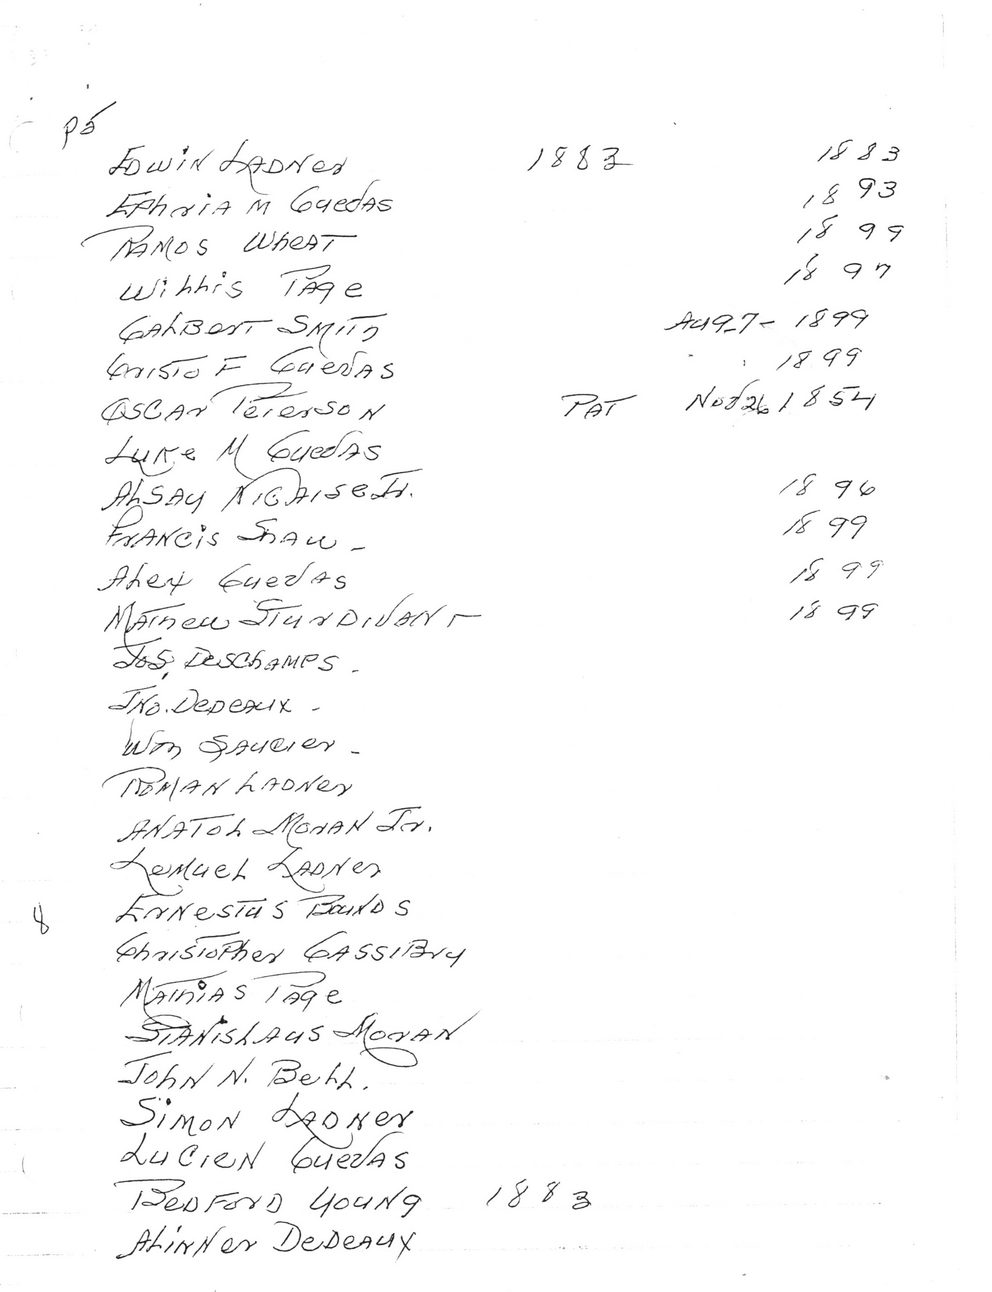 p5
Edwin Ladner 1883 1883
Ephria M Cuevas 1893
Ramos Wheat 1899
Willis Page 1897
Calbert Smith Aug 7- 1899
Cristo F Cuevas 1899
Oscar Peterson PAT Nov 26 1854
Luke M Cuevas
Alsay Nicaise Jr. 1896
Francis Shaw - 1899
Alex Cuevas 1899
Mathew Sturdivant 1899
Jos. Deschamps -
Jno. Dedeaux -
Wm Saucier -
Roman Ladner
Anatol Moran Jr.
Lemuel Ladner
Ernestus Bounds
8
Christopher Cassibry
Mathias Page
Stanislaus Moran
John N. Bell.
Simon Ladner
Lucien Cuevas
Bedford Young 1883
Alinner Dedeaux